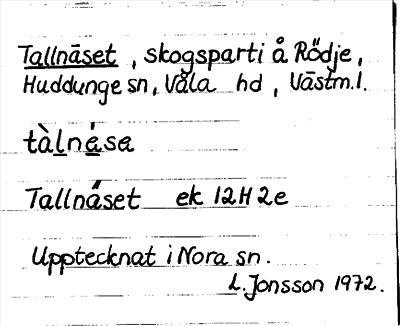 Tallnäset, skogsparti å Rödje,
Huddunge sn, Våla hd, Västm.l.
tàlnása
Tallnäset ek 12H2e
Upptecknat i Nora sn.
L. Jonsson 1972.